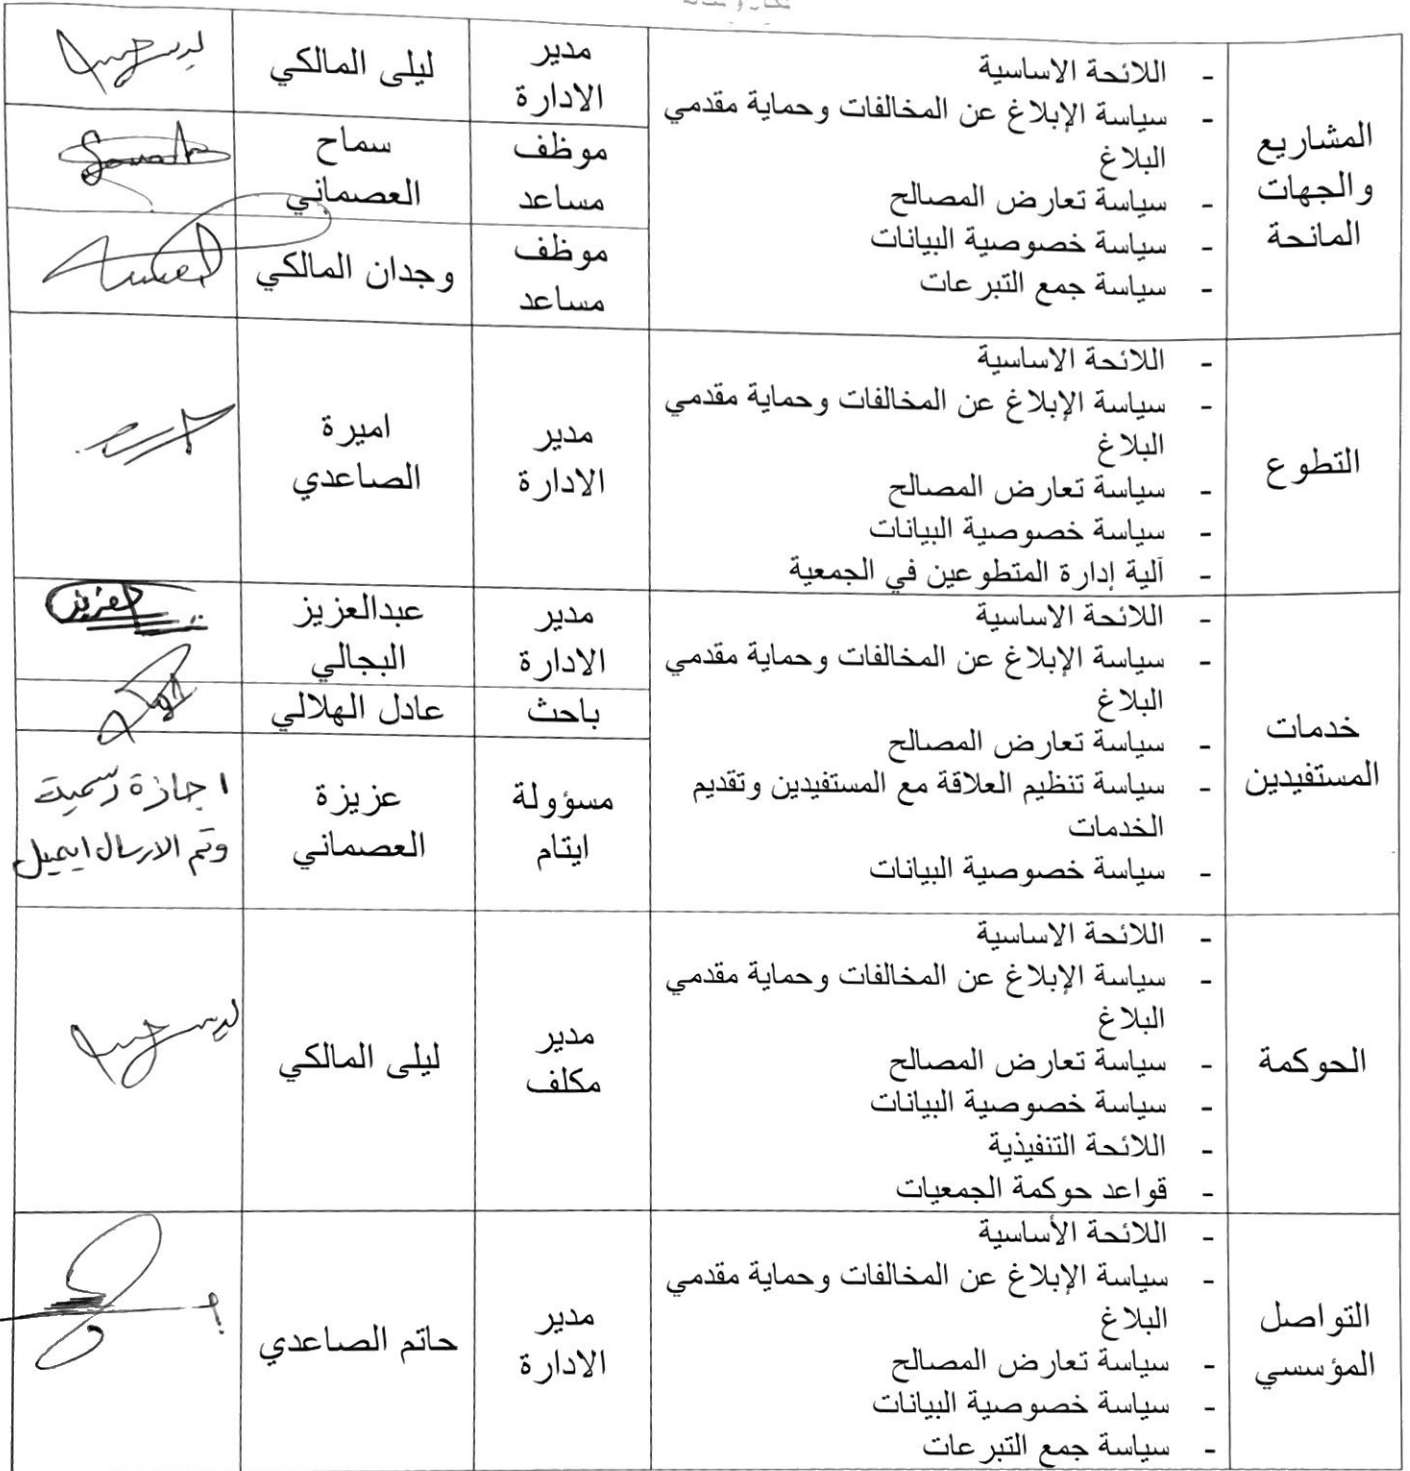 المشاريع
والجهات
المانحة
- اللائحة الاساسية
- سياسة الإبلاغ عن المخالفات وحماية مقدمي
البلاغ
- سياسة تعارض المصالح
- سياسة خصوصية البيانات
- سياسة جمع التبرعات
مدير
الادارة
ليلى المالكي
موظف
مساعد
سماح
العصماني
موظف
مساعد
وجدان المالكي
التطوع
- اللائحة الاساسية
- سياسة الإبلاغ عن المخالفات وحماية مقدمي
البلاغ
- سياسة تعارض المصالح
- سياسة خصوصية البيانات
- آلية إدارة المتطوعين في الجمعية
مدير
الادارة
اميرة
الصاعدي
خدمات
المستفيدين
- اللائحة الاساسية
- سياسة الإبلاغ عن المخالفات وحماية مقدمي
البلاغ
- سياسة تعارض المصالح
- سياسة تنظيم العلاقة مع المستفيدين وتقديم
الخدمات
- سياسة خصوصية البيانات
مدير
الادارة
عبدالعزيز
البجالي
باحث
عادل الهلالي
مسؤولة
ايتام
عزيزة
العصماني
اجازة رسمية
وتم الارسال ايميل
الحوكمة
- اللائحة الاساسية
- سياسة الإبلاغ عن المخالفات وحماية مقدمي
البلاغ
- سياسة تعارض المصالح
- سياسة خصوصية البيانات
- اللائحة التنفيذية
- قواعد حوكمة الجمعيات
مدير
مكلف
ليلى المالكي
التواصل
المؤسسي
- اللائحة الأساسية
- سياسة الإبلاغ عن المخالفات وحماية مقدمي
البلاغ
- سياسة تعارض المصالح
- سياسة خصوصية البيانات
- سياسة جمع التبرعات
مدير
الادارة
حاتم الصاعدي